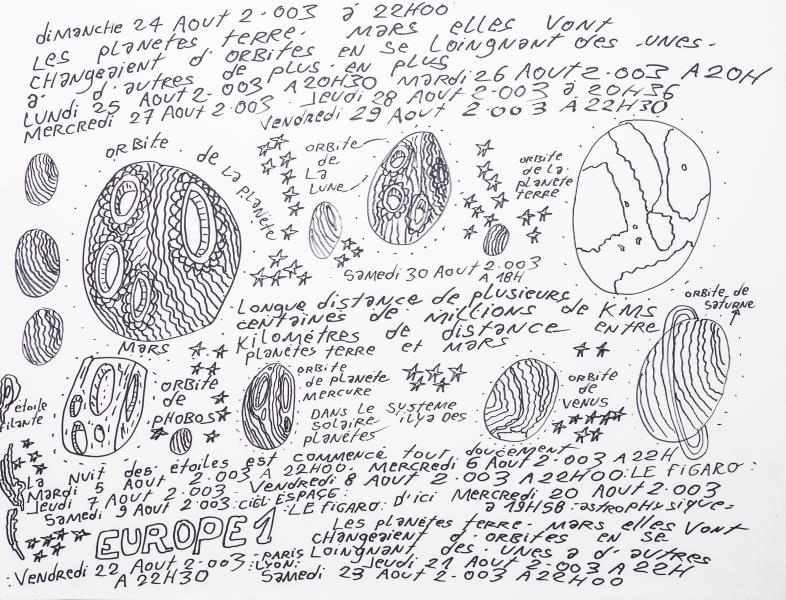 dimanche 24 Aout 2.003 à 22H00
Les planètes terre. Mars elles vont
changeaient d'orbites en se Loingnant des .unes.
à d'autres de plus en plus
Lundi 25 Aout 2.003 A 20H30 Mardi 26 Aout 2.003 A 20H
Mercredi 27 Aout 2.003. Jeudi 28 Aout 2.003 à 20H36
Vendredi 29 Aout 2.003 A 22H30
orbite de la planète
Mars
orbite
de
La
Lune
orbite
de la
planète
terre
Samedi 30 Aout 2.003
A 18H
Longue distance de plusieurs
centaines de millions de KMS
Kilomètres de distance entre
planètes terre et Mars
orbite de
Saturne
étoile
filante
orbite
de
pHobos
orbite
de planète
Mercure
Dans Le Systeme
Solaire ilya Des
planètes
orbite
de
Venus
La Nuit des étoiles est commencé tout doucement
Mardi 5 Aout 2.003 A 22H00. Mercredi 6 Aout 2.003 A 22H
Jeudi 7 Aout 2.003 Vendredi 8 Aout 2.003 A 22H00: Le Figaro:
Samedi 9 Aout 2.003: ciel-ESPACE:
: Le Figaro: d'ici Mercredi 20 Aout 2.003
à 19H58: astrophysique:
EUROPE 1
Les planètes terre. Mars elles vont
changeaient d'orbites en se
Loingnant des unes a d'autres
:Vendredi 22 Aout 2.003:
A 22H30
:Paris
:Lyon:
Jeudi 21 Aout 2.003 A 22H
Samedi 23 Aout 2.003 A 22H00